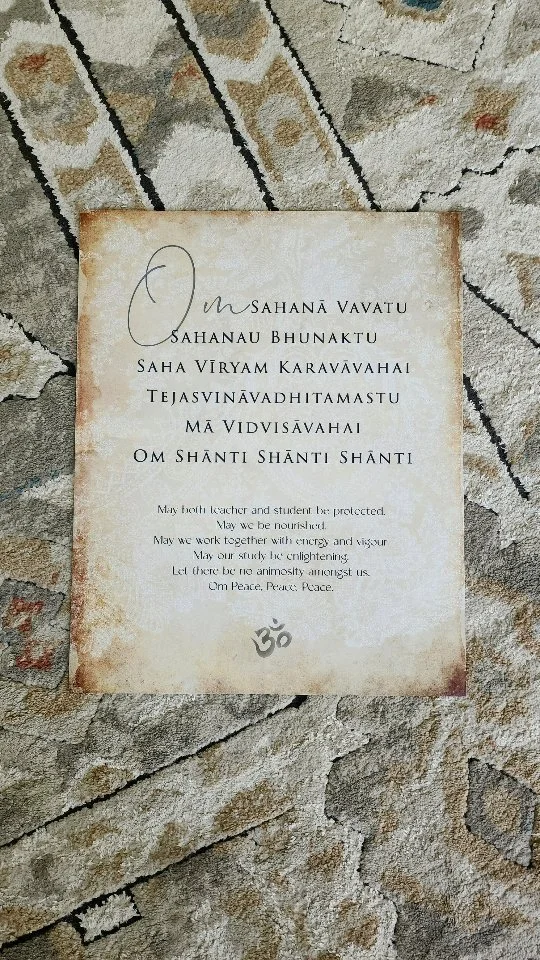 Om SAHANĀ VAVATU
SAHANAU BHUNAKTU
SAHA VĪRYAM KARAVĀVAHAI
TEJASVINĀVADHITAMASTU
MĀ VIDVISĀVAHAI
OM SHĀNTI SHĀNTI SHĀNTI
May both teacher and student be protected.
May we be nourished.
May we work together with energy and vigour
May our study be enlightening.
Let there be no animosity amongst us.
Om Peace, Peace, Peace.
ॐ